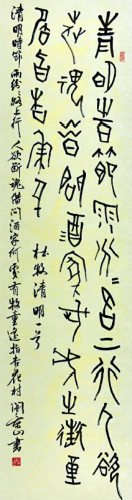 青明時節雨紛紛路上行人欲
斷魂借問酒家何處有牧童
遥指杏花村 杜牧清明一首
清明時節雨紛紛路上行人欲断魂借問酒家何處有牧童遥指杏花村